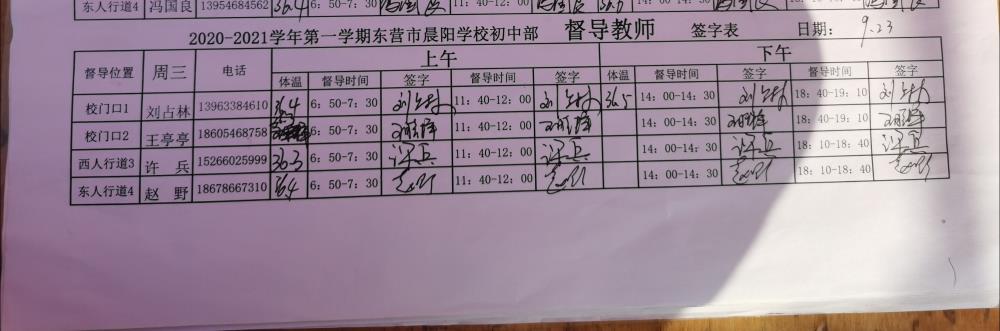 东人行道4 冯国良 13954684562 36.4 6：50-7：30 冯国良 11：40-12：00 冯国良 14：00-14：30 冯国良
2020-2021学年第一学期东营市晨阳学校初中部 督导教师 签字表 日期： 9.23
督导位置 周三 电话 上午 下午
体温 督导时间 签字 督导时间 签字 体温 督导时间 签字 督导时间 签字
校门口1 刘占林 13963384610 36.4 6：50-7：30 刘占林 11：40-12：00 刘占林 36.5 14：00-14：30 刘占林 18：40-19：10 刘占林
校门口2 王亭亭 18605468758 6：50-7：30 11：40-12：00 14：00-14：30 18：40-19：10
西人行道3 许兵 15266025999 36.3 6：50-7：30 许兵 11：40-12：00 许兵 14：00-14：30 许兵 18：10-18：40 许兵
东人行道4 赵野 18678667310 36.4 6：50-7：30 赵野 11：40-12：00 赵野 14：00-14：30 赵野 18：10-18：40 赵野